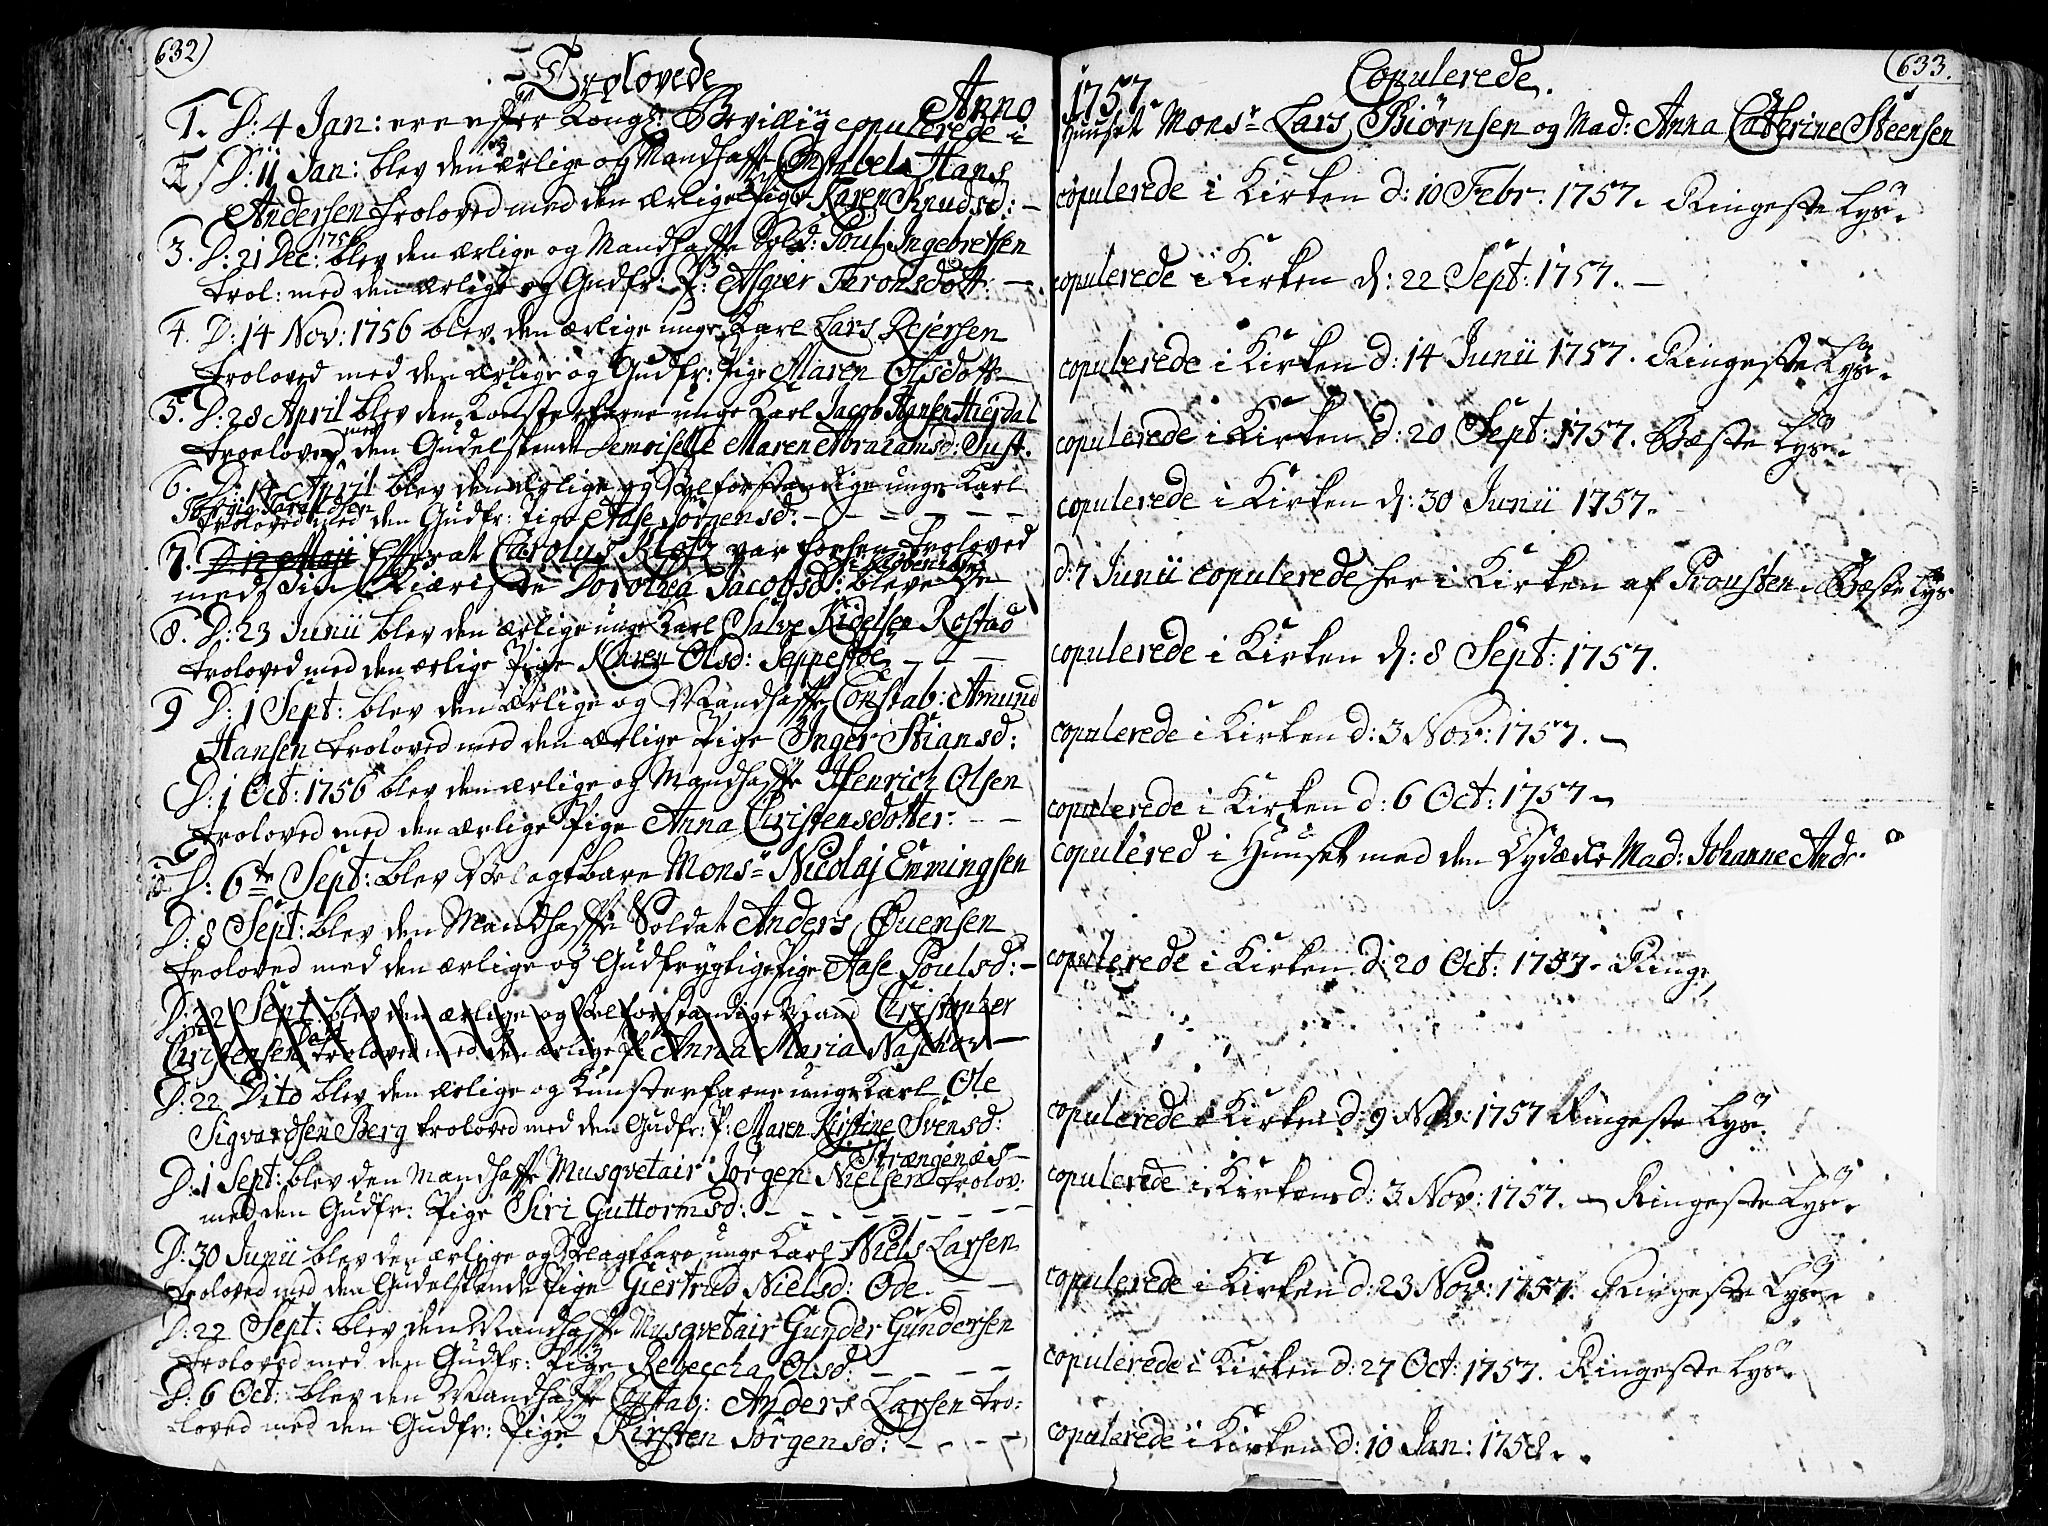 632)
Trolovede
Anno
1. D: 4 Jan: ere efter Kongs: Bevilling copulerede i
2. D: 11 Jan: blev den ærlige og Mandhaffte Constabel Hans
Andersen troloved med den ærlige Pige Karen Knudsd: –
3. D: 21 Dec: 1756 blev den ærlige og Mandhaffte Sold: Poul Ingebretsen
trol: med den ærlige og Gudfr: P: Asgier Tronsdott: –
4. D: 14 Nov: 1756 blev den ærlige unge Karl Lars Rejersen
troloved med den ærlige og Gudfr: Pige Maren Olsdott –
5. D: 28 April blev den Konsterfarne unge Karl Jacob Hansen Hierdal
troeloved med den Gudelskende Demoiselle Maren Abrahamsd: Just.
6. D: 14 April blev den ærlige og Velforstandige unge Karl
Jörgen
troloved med den Gudfr: Pige Aase Jörgensd: – – – – –
7. D: 12 Maji Efterat Carolus Klotz var forhen troloved
med sin Kiæriste Dorothea Jacobsd: i Kiøbenhavn bleve de
8. D: 23 Junii blev den ærlige unge Karl Salve Kidelsen Rostad
troloved med den ærlige Pige Karen Olsd: Seppestøe – – –
9 D: 1 Sept: blev den ærlige og Mandhaffte Constab: Amund
Hansen troloved med den ærlige Pige Inger Stiansd:
D: 1 Oct: 1756 blev den ærlige og Mandhaffte Henrich Olsen
troloved med den ærlige Pige Anna Christensdotter. – –
D: 6te Sept: blev Velagtbare Monsr Nicolaj Emmingsen
D: 8 Sept: blev den Mandhaffte Soldat Anders Ouensen
troloved med den ærlige og Gudfrygtige Pige Aase Poulsd: –
D: 22 Sept: blev den ærlige og Velforstandige Mand Christopher
Christensen troloved med den ærlige P: Anna Maria Naschov –
D: 22 Dito blev den ærlige og Kunsterfarne unge Karl Ole
Sigvardsen Berg troloved med den Gudfr: P: Maren Kirstine Svensd:
Strængenæs –
D: 1 Sept: blev den Mandhaffte Musqvetair Jörgen Nielsen trolov:
med den Gudfr: Pige Siri Guttormsd: – – – – – – –
D: 30 Junii blev den ærlige og Velagtbare unge Karl Niels Larsen
troloved med den Gudelskende Pige Giertrud Nielsd: Ode. – –
D: 22 Sept: blev den Mandhaffte Musqvetair Gunder Gundersen
troloved med den Gudfr: Pige Rebeccha Olsd: – – – –
D: 6 Oct: blev den Mandhaffte Constab: Anders Larsen tro-
loved med den Gudfr: Pige Kirsten Jörgensd: – – – –
633.
1757
Copulerede.
Huuset Monsr Lars Biørnsen og Mad: Anna Catherine Steensen
copulerede i Kirken d: 10 Febr: 1757. Ringeste Lys.
copulerede i Kirken d: 22 Sept: 1757. –
copulerede i Kirken d: 14 Junii 1757. Ringeste Lys.
copulerede i Kirken d: 20 Sept: 1757. Bæste Lys.
copulerede i Kirken d: 30 Junii 1757.
d: 7 Junii copulerede her i Kirken af Prousten. Bæste Lys
copulerede i Kirken d: 8 Sept: 1757.
copulerede i Kirken d: 3 Nov: 1757. –
copulerede i Kirken d: 6 Oct: 1757 –
copulered i Huuset med den Dydædle Mad: Johanne And
copulerede i Kirken d: 20 Oct: 1757. Ringe
copulerede i Kirken d: 9 Nov: 1757 Ringeste Lys
copulerede i Kirken d: 3 Nov: 1757. – Ringeste Lys.
copulerede i Kirken d: 23 Nov: 1757. Ringeste Lys.
copulerede i Kirken d: 27 Oct: 1757. Ringeste Lys.
copulerede i Kirken d: 10 Jan: 1758.